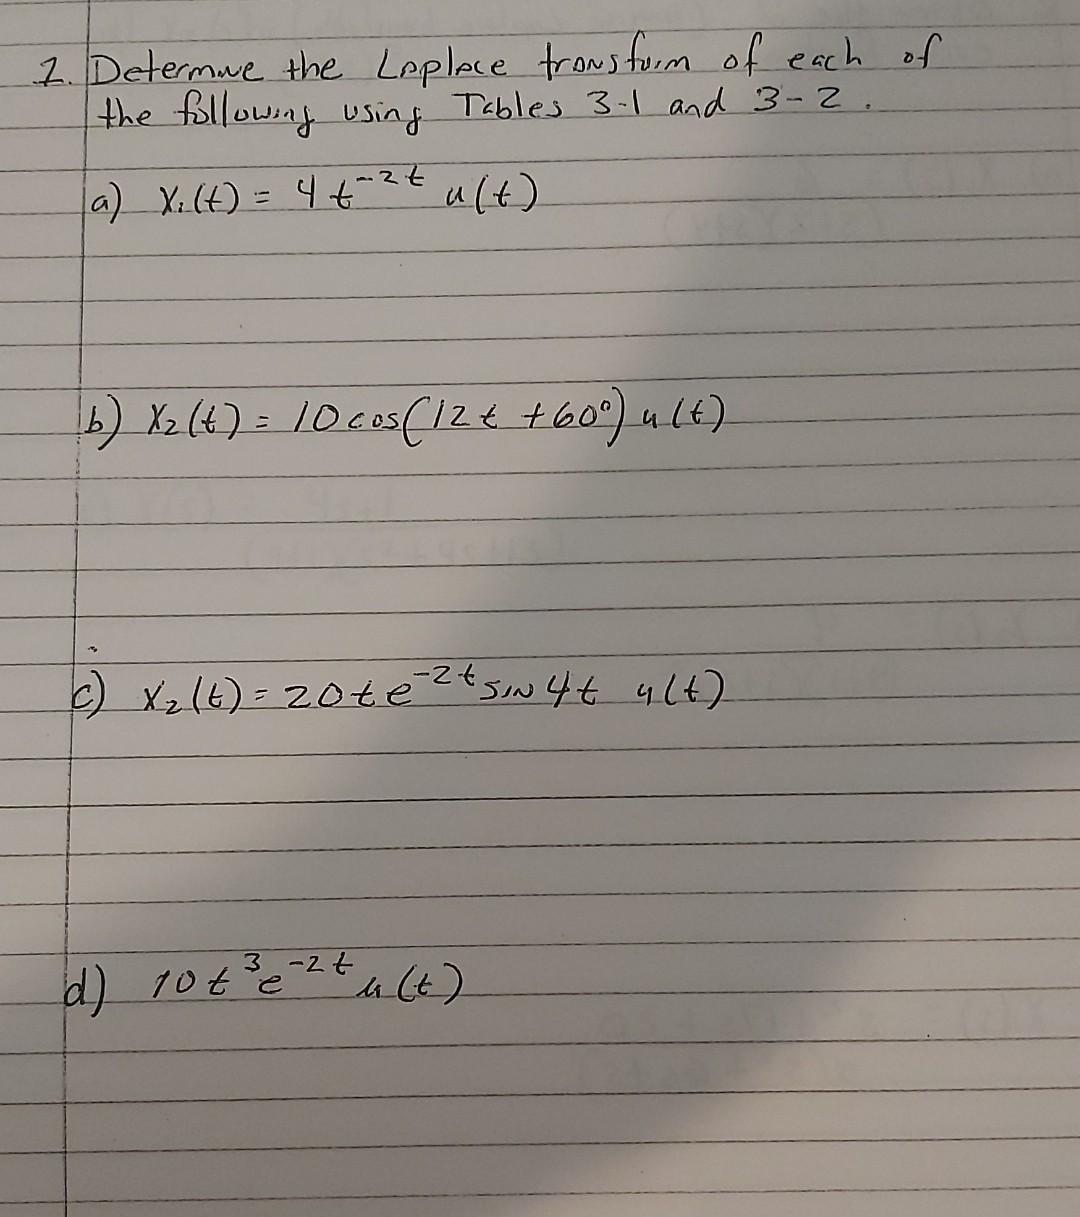 1. Determine the Laplace transform of each of
the following using Tables 3-1 and 3-2.
a) X₁(t) = 4 t⁻²ᵗ u(t)
b) X₂(t) = 10 cos(12t + 60°) u(t)
c) X₂(t) = 20te⁻²ᵗ sin 4t u(t)
d) 10t³e⁻²ᵗ u(t)